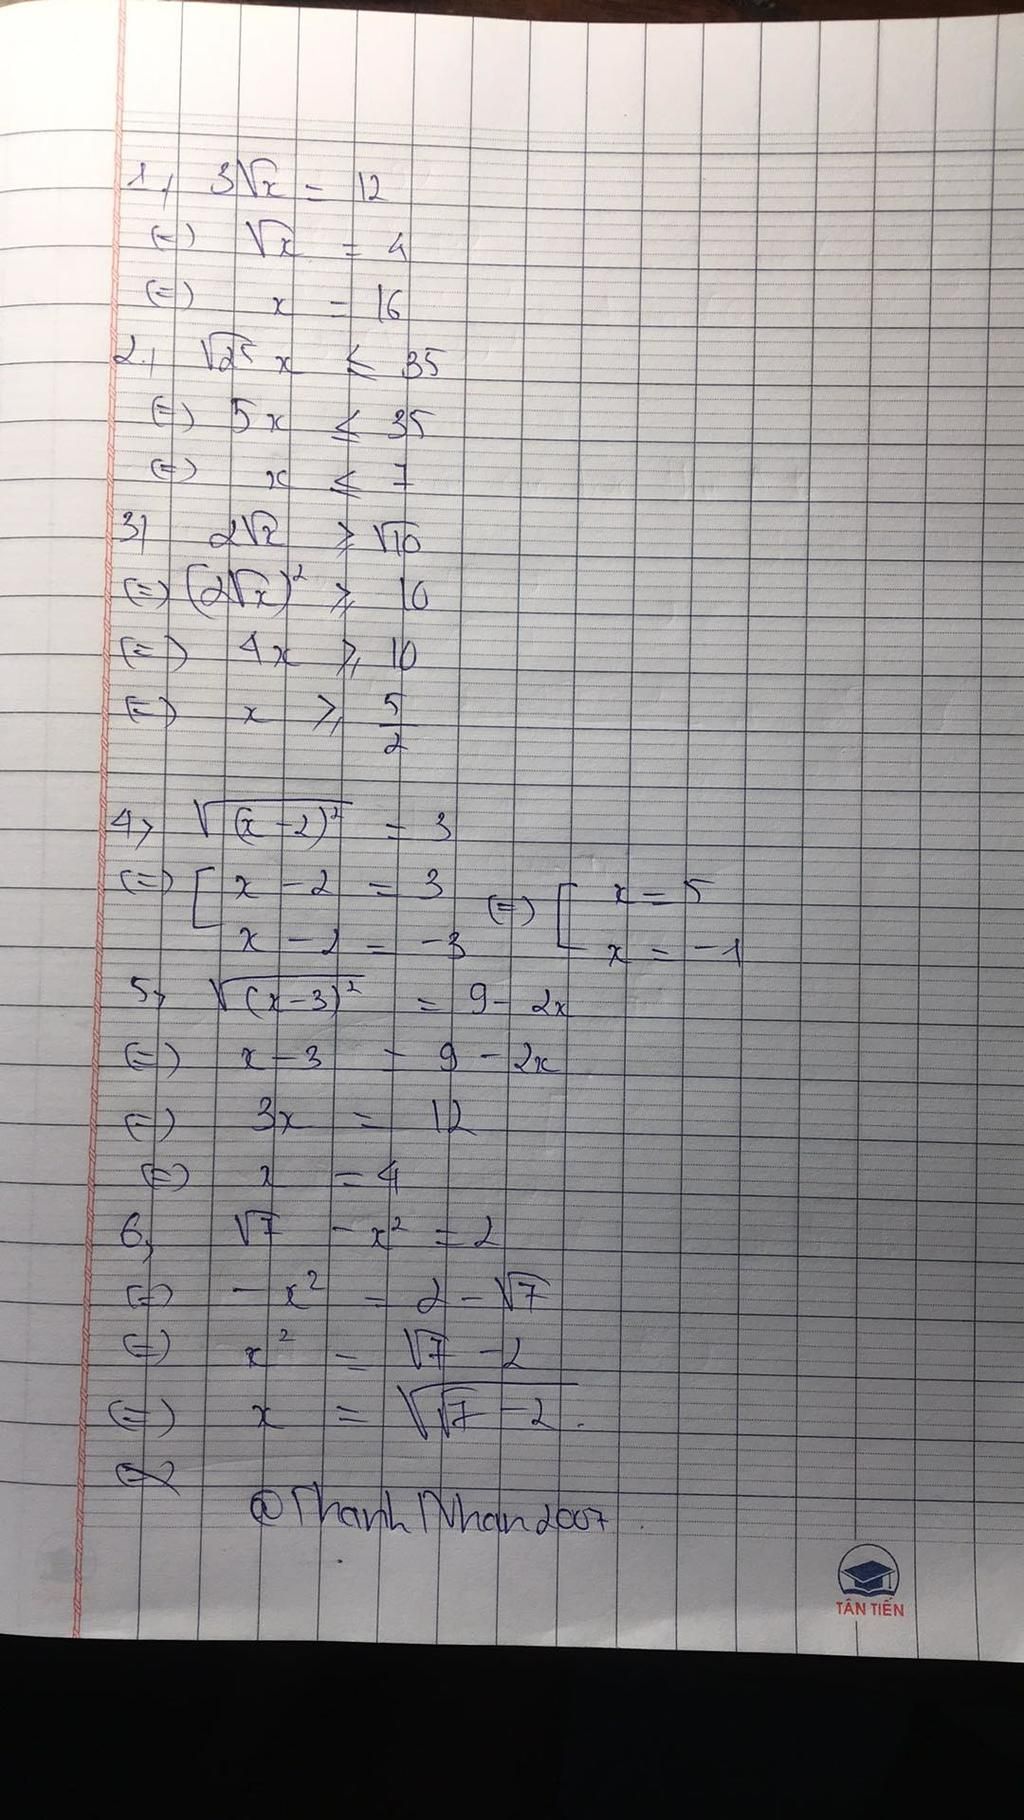 1, 3√x = 12
(=) √x = 4
(=) x = 16
2, √25 x ≤ 35
(=) 5x ≤ 35
(=) x ≤ 7
3) 2√x ≥ √10
(=) (2√x)² ≥ 10
(=) 4x ≥ 10
(=) x ≥ 5/2
4, √(x-2)² = 3
(=) [ x - 2 = 3 (=) [ x = 5
x - 2 = -3 x = -1
5, √(x-3)² = 9 - 2x
(=) x - 3 = 9 - 2x
(=) 3x = 12
(=) x = 4
6, √7 - x² = 2
(=) - x² = 2 - √7
(=) x² = √7 - 2
(=) x = √(√7 - 2).
@ThanhNhan2007
TÂN TIẾN